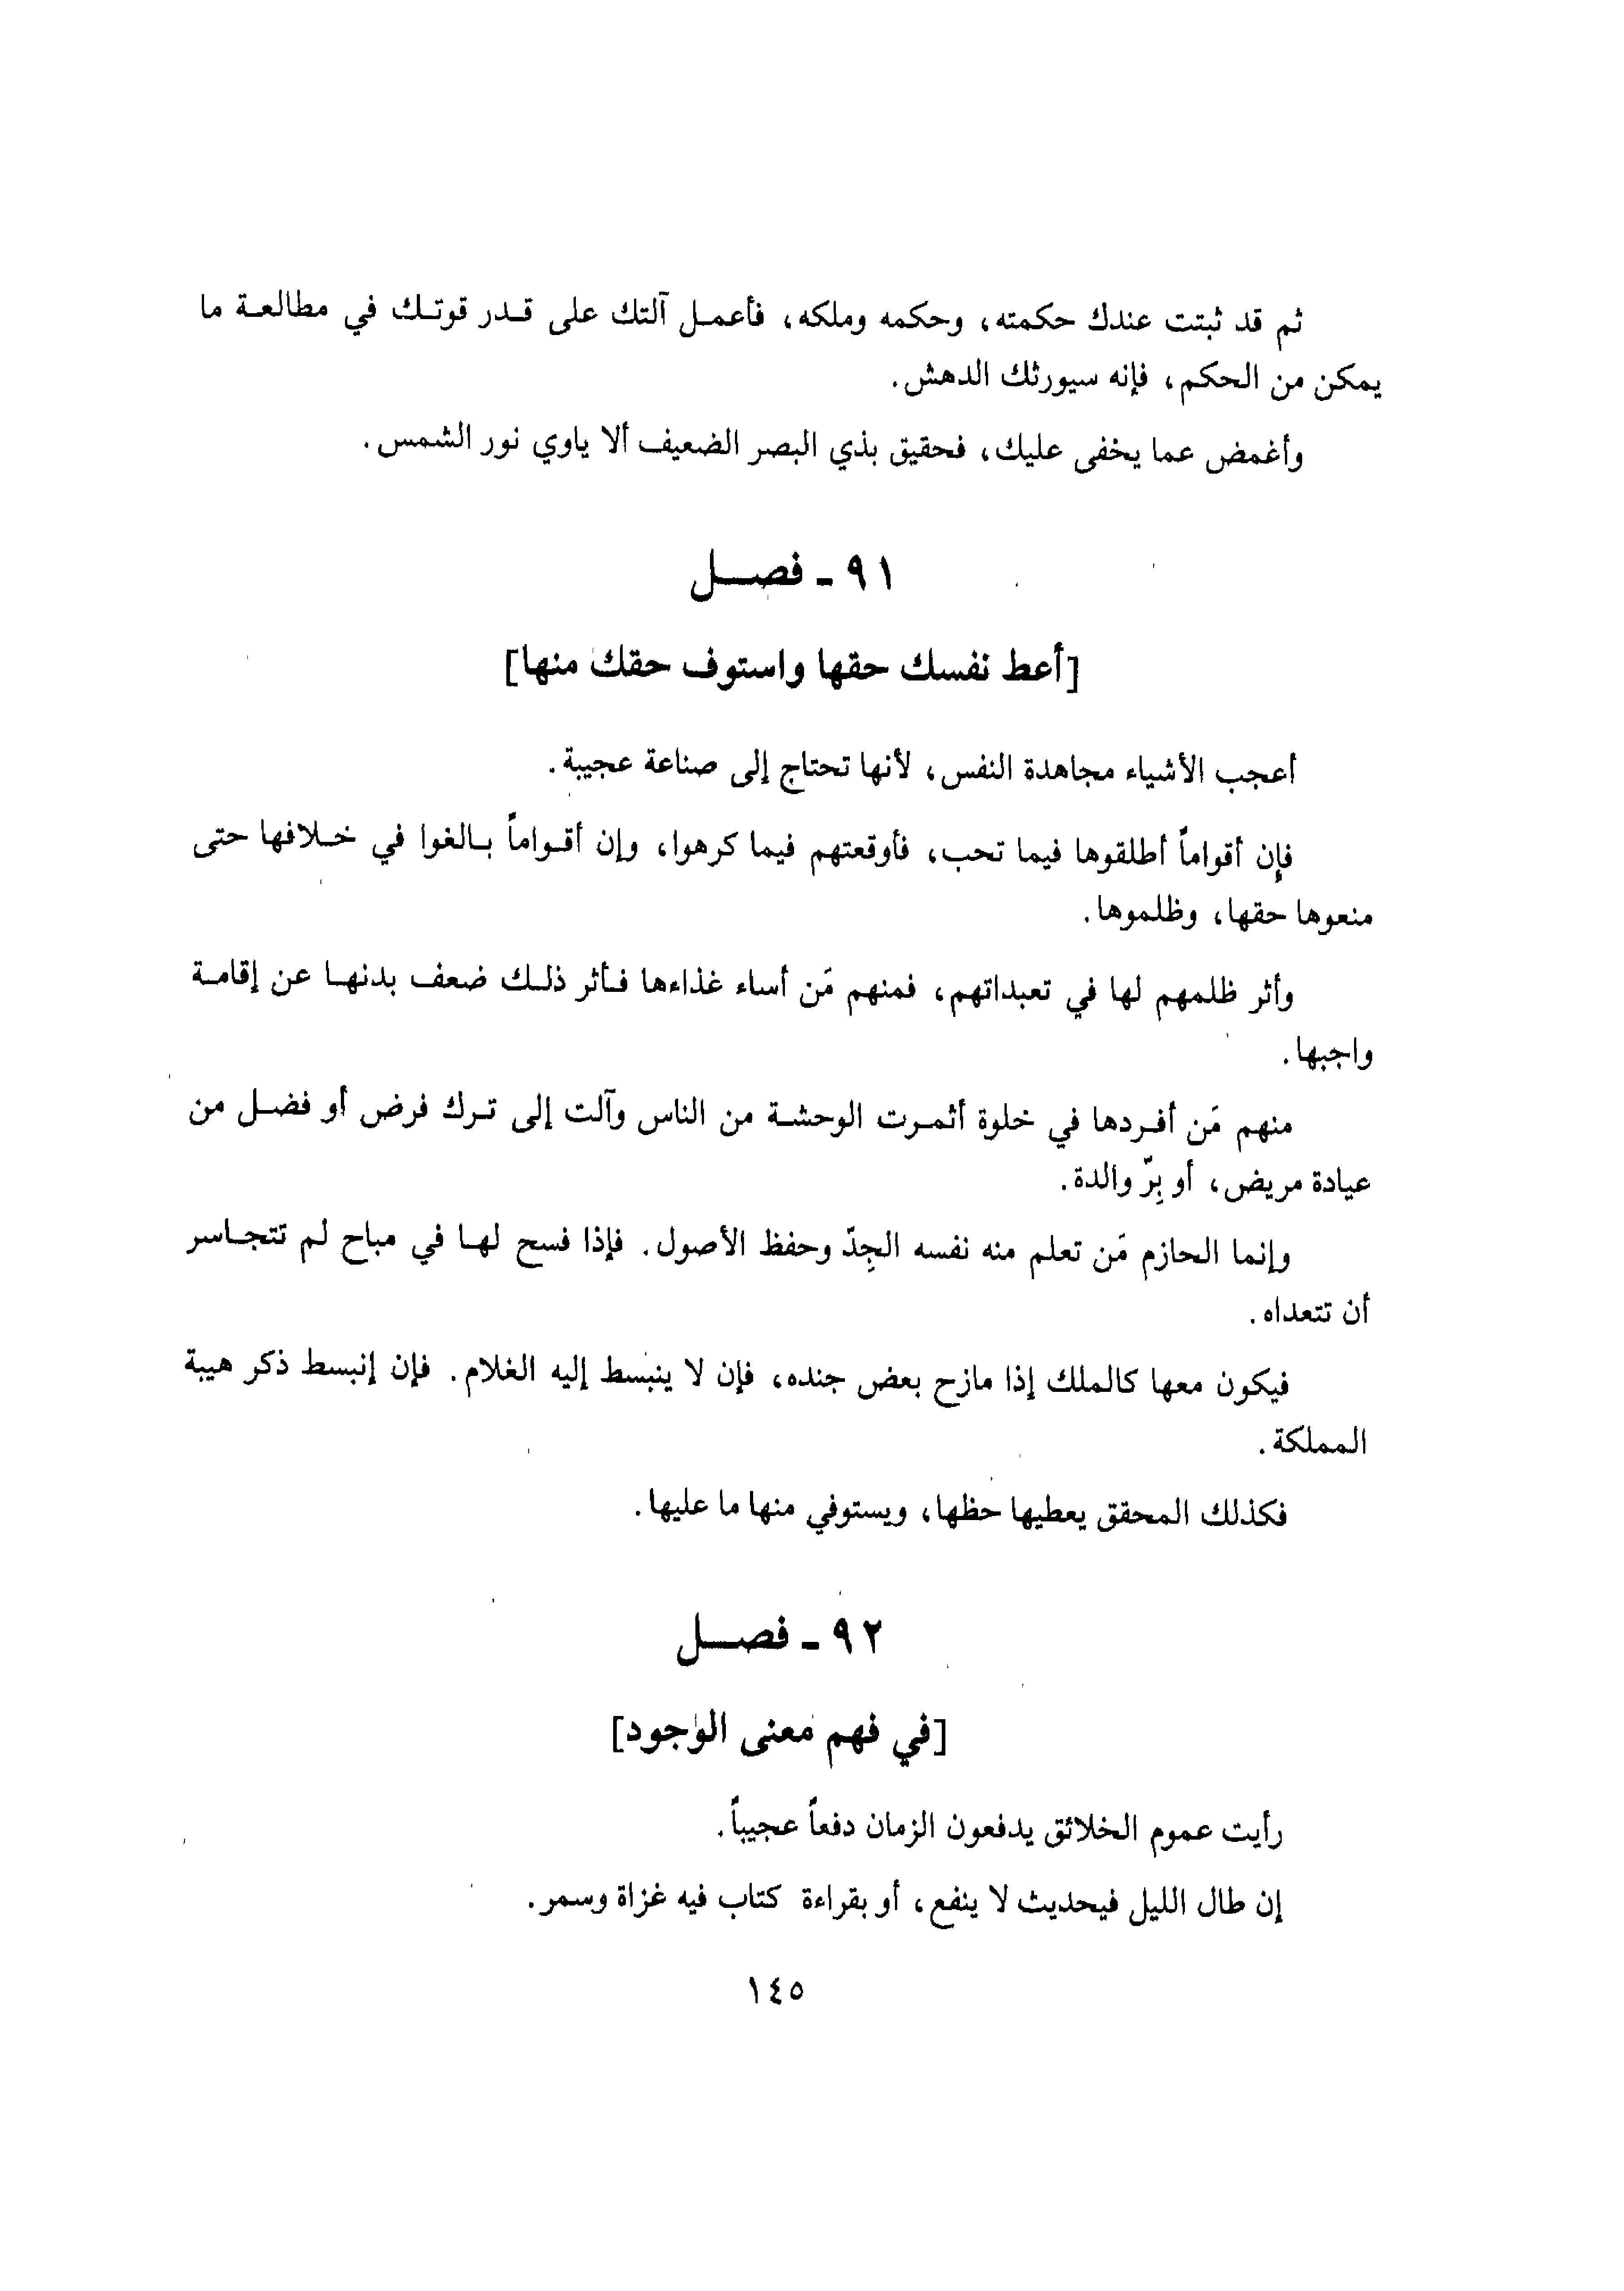 ثم قد ثبتت عندك حكمته، وحكمه وملكه، فأعمل آلتك على قدر قوتك في مطالعة ما
يمكن من الحكم، فإنه سيورثك الدهش.
وأغمض عما يخفى عليك، فحقيق بذي البصر الضعيف ألا ياوي نور الشمس.
٩١ - فصل
[أعط نفسك حقها واستوف حقك منها]
أعجب الأشياء مجاهدة النفس، لأنها تحتاج إلى صناعة عجيبة.
فإن أقواماً أطلقوها فيما تحب، فأوقعتهم فيما كرهوا، وإن أقواماً بالغوا في خلافها حتى
منعوها حقها، وظلموها.
وأثر ظلمهم لها في تعبداتهم، فمنهم مَن أساء غذاءها فأثر ذلك ضعف بدنها عن إقامة
واجبها.
منهم مَن أفردها في خلوة أثمرت الوحشة من الناس وآلت إلى ترك فرض أو فضل من
عيادة مريض، أو بِرّ والدة.
وإنما الحازم مَن تعلم منه نفسه الجِدّ وحفظ الأصول. فإذا فسح لها في مباح لم تتجاسر
أن تتعداه.
فيكون معها كالملك إذا مازح بعض جنده، فإن لا ينبسط إليه الغلام. فإن إنبسط ذكر هيبة
المملكة.
فكذلك المحقق يعطيها حظها، ويستوفي منها ما عليها.
٩٢ - فصل
[في فهم معنى الوجود]
رأيت عموم الخلائق يدفعون الزمان دفعاً عجيباً.
إن طال الليل فيحديث لا ينفع، أو بقراءة كتاب فيه غزاة وسمر.
١٤٥